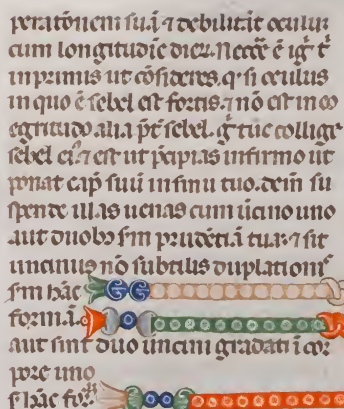 peratōnem suā ⁊ debilitāt oculuȝ
cum longitudīe dieꝝ. Neccē ē iḡ t̄
in primis ut cōsideres. q̄ si oculus
in quo ē sebel est fortis. ⁊ nō est in eo
egritudo alia pt̄ sebel. ḡ tūc collige
sebel ei᷒ ⁊ est ut p̄cipias infirmo ut
ponat cap̄ suū in sinu tuo. dein̄ su
spende illas uenas cum uncino uno
aut duobꝫ s̄m prudētiā tuaꝫ ⁊ sit
uncinus nō subtilis duplationis
s̄m hāc
formā.
aut sint duo uncini gradati ī cor
pore uno
s̄ hāc for̄